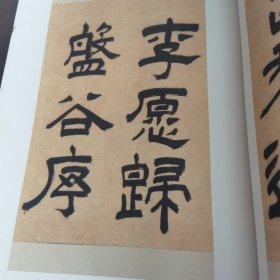 李愿歸
盤谷序